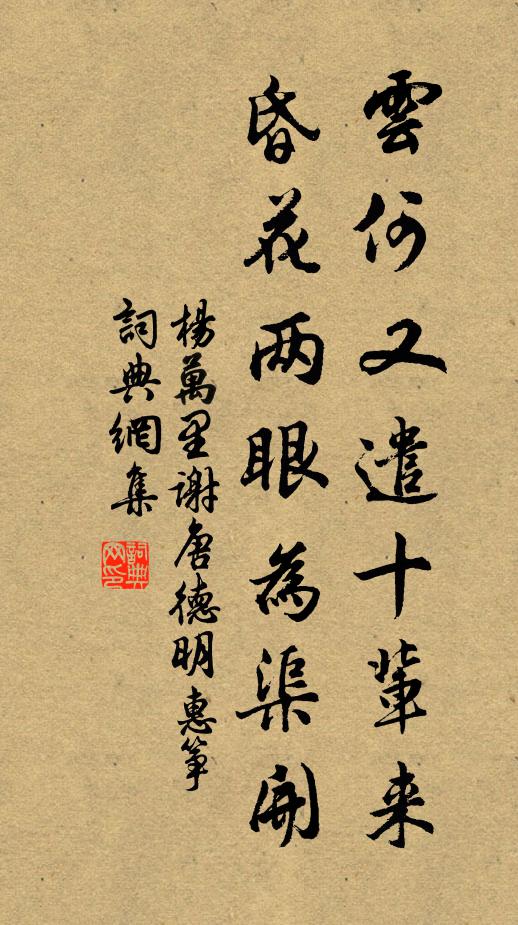 雲何又遣十輩来
昏花两眼為渠開
楊萬里謝唐德明惠筝
詞典網集
詞典
网印